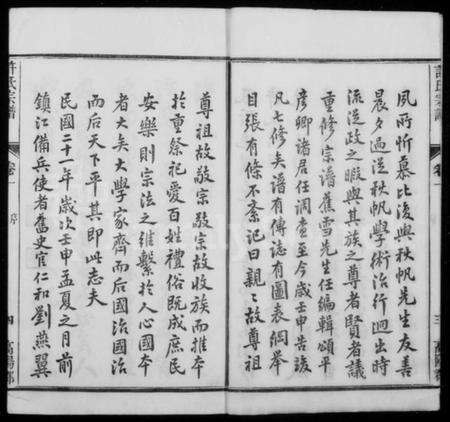 許氏宗譜
卷一
夙所忻慕比後與秋帆先生友善
晨夕過從秋帆學術治行迥出時
流從政之暇與其族之尊者賢者議
重修宗譜蕉雪先生任編輯頌平
彥卿諸居任調查至今歲壬申告竣
凡七修矣譜有傳誌有圖表綱舉
目張有條不紊記曰親親故尊祖
三
高陽郡
尊祖故敬宗敬宗故收族而推本
於重祭祀愛百姓禮俗既成庶民
安樂則宗法之維繫於人心國本
者大矣大學家齊而后國治國治
而后天下平其即此志夫
民國二十一年歲次壬申孟夏之月前
鎮江備兵使者舊史官仁和劉燕翼
許氏宗譜
卷一
序
四
高陽郡